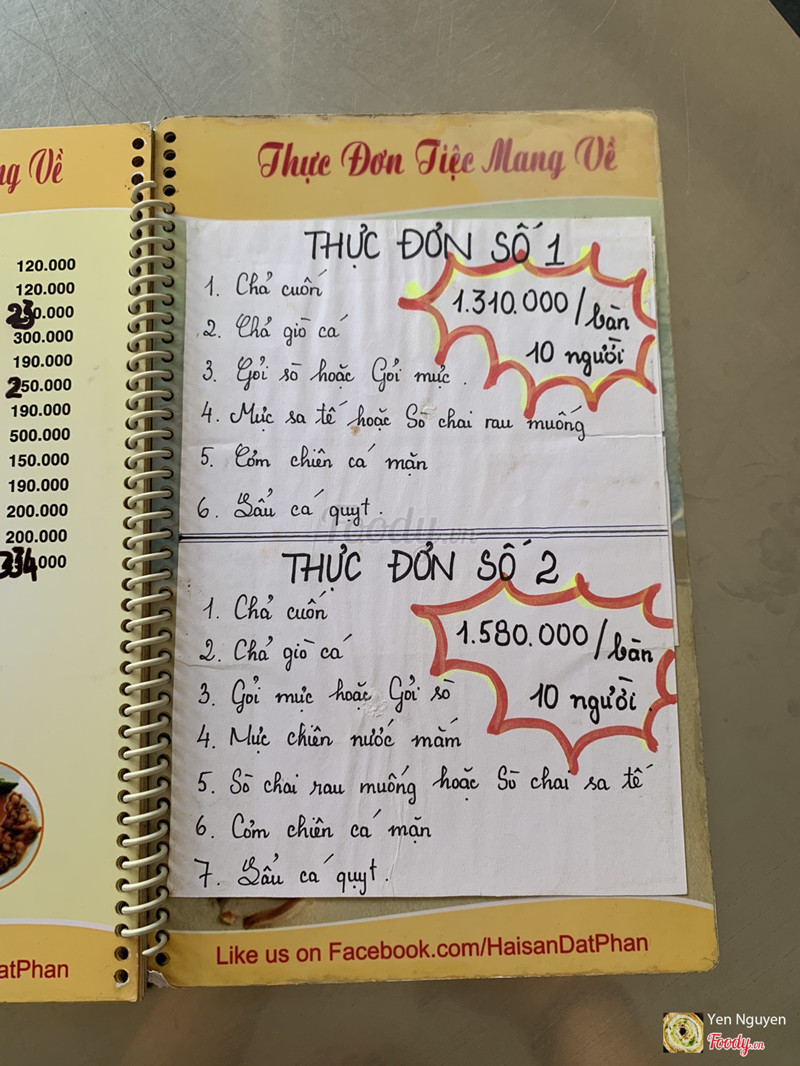 ng Về
120.000
120.000
230.000
300.000
190.000
250.000
190.000
500.000
150.000
190.000
200.000
200.000
000
atPhan
Thực Đơn Tiệc Mang Về
THỰC ĐƠN SỐ 1
1.310.000/bàn
10 người
1. Chả cuốn
2. Chả giò cá
3. Gỏi sò hoặc Gỏi mực.
4. Mực sa tế hoặc Sò chai rau muống
5. Cơm chiên cá mặn
6. Lẩu cá quỵt.
THỰC ĐƠN SỐ 2
1.580.000/bàn
10 người.
1. Chả cuốn
2. Chả giò cá
3. Gỏi mực hoặc Gỏi sò
4. Mực chiên nước mắm
5. Sò chai rau muống hoặc Sò chai sa tế
6. Cơm chiên cá mặn
7. Lẩu cá quỵt.
Like us on Facebook.com/HaisanDatPhan
Foody.vn
Yen Nguyen
Foody.vn